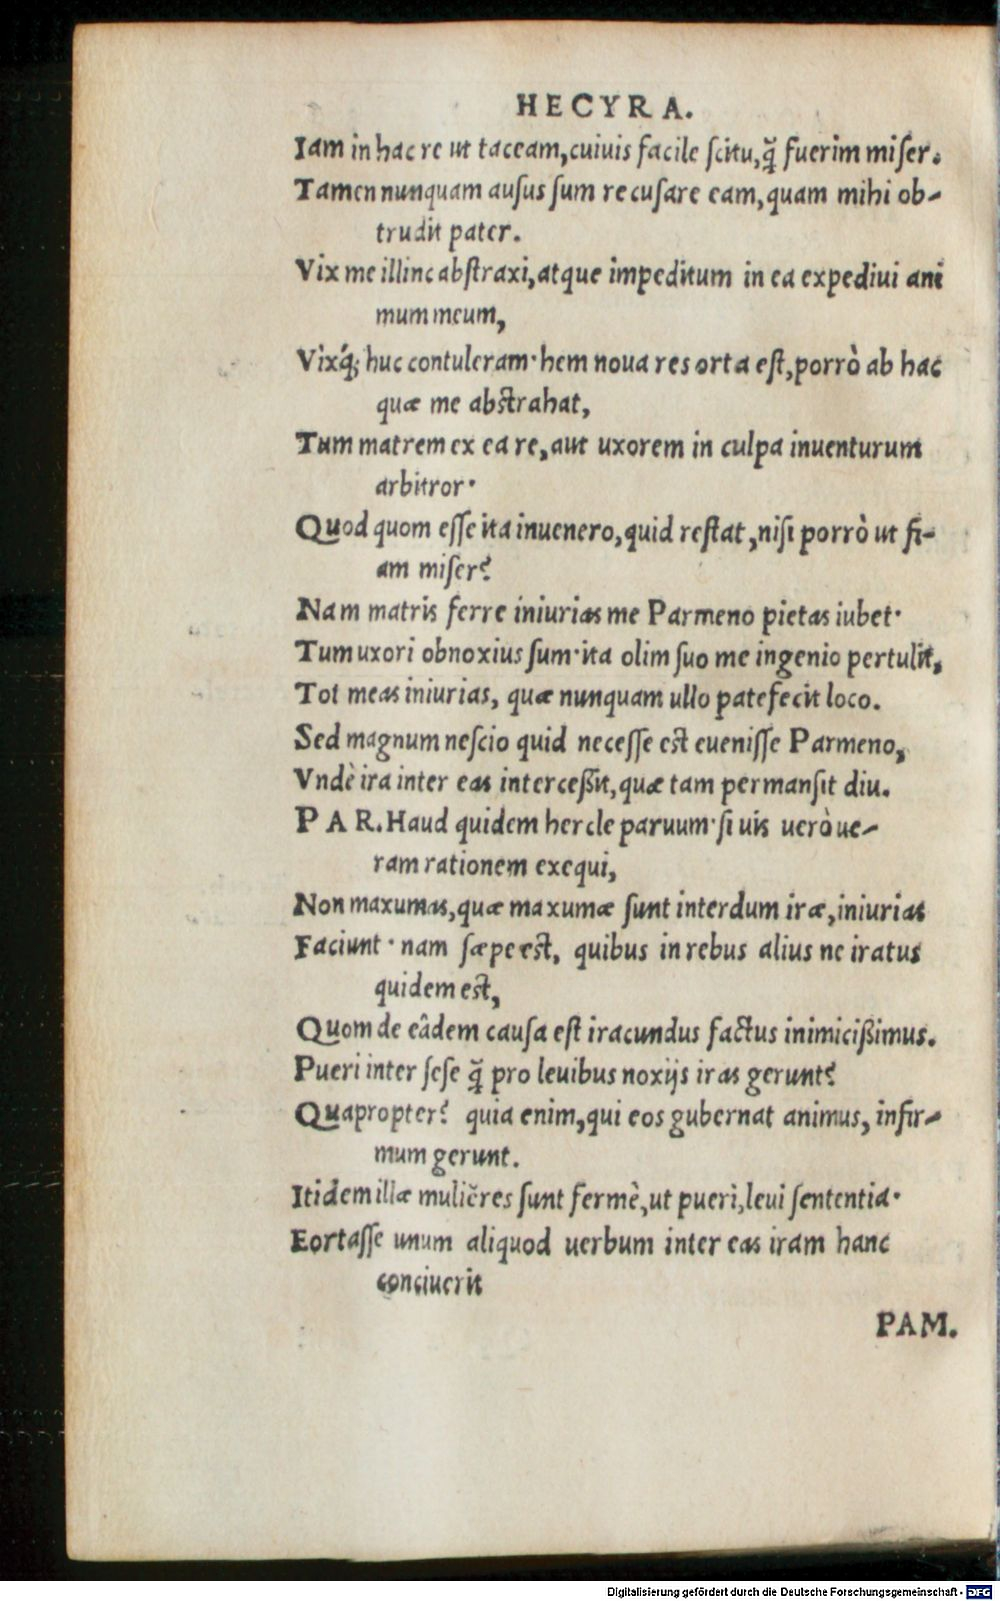 HECYRA.
Iam in hac re ut taceam, cuiuis facile ſcitu, q̃ fuerim miſer.
Tamen nunquam auſus ſum recuſare eam, quam mihi ob-
trudit pater.
Vix me illinc abſtraxi, atque impeditum in ea expediui ani
mum meum,
Vixq́; huc contuleram· hem noua res orta eſt, porrò ab hac
quæ me abſtrahat,
Tum matrem ex ea re, aut uxorem in culpa inuenturum
arbitror·
Quod quom eſſe ita inuenero, quid reſtat, niſi porrò ut fi-
am miſer?
Nam matris ferre iniurias me Parmeno pietas iubet·
Tum uxori obnoxius ſum· ita olim ſuo me ingenio pertulit,
Tot meas iniurias, quæ nunquam ullo patefecit loco.
Sed magnum neſcio quid neceſſe eſt eueniſſe Parmeno,
Vndè ira inter eas interceßit, quæ tam permanſit diu.
PAR. Haud quidem hercle paruum· ſi uis uerò ue-
ram rationem exequi,
Non maxumas, quæ maxumæ ſunt interdum iræ, iniurias
Faciunt· nam ſæpe eſt, quibus in rebus alius ne iratus
quidem eſt,
Quom de eâdem cauſa eſt iracundus factus inimicißimus.
Pueri inter ſeſe q̃ pro leuibus noxijs iras gerunt?
Quapropter? quia enim, qui eos gubernat animus, infir-
mum gerunt.
Itidem illæ mulieres ſunt fermè, ut pueri, leui ſententia·
Eortaſſe unum aliquod uerbum inter eas iram hanc
conciuerit
PAM.
Digitalisierung gefördert durch die Deutsche Forschungsgemeinschaft - DFG